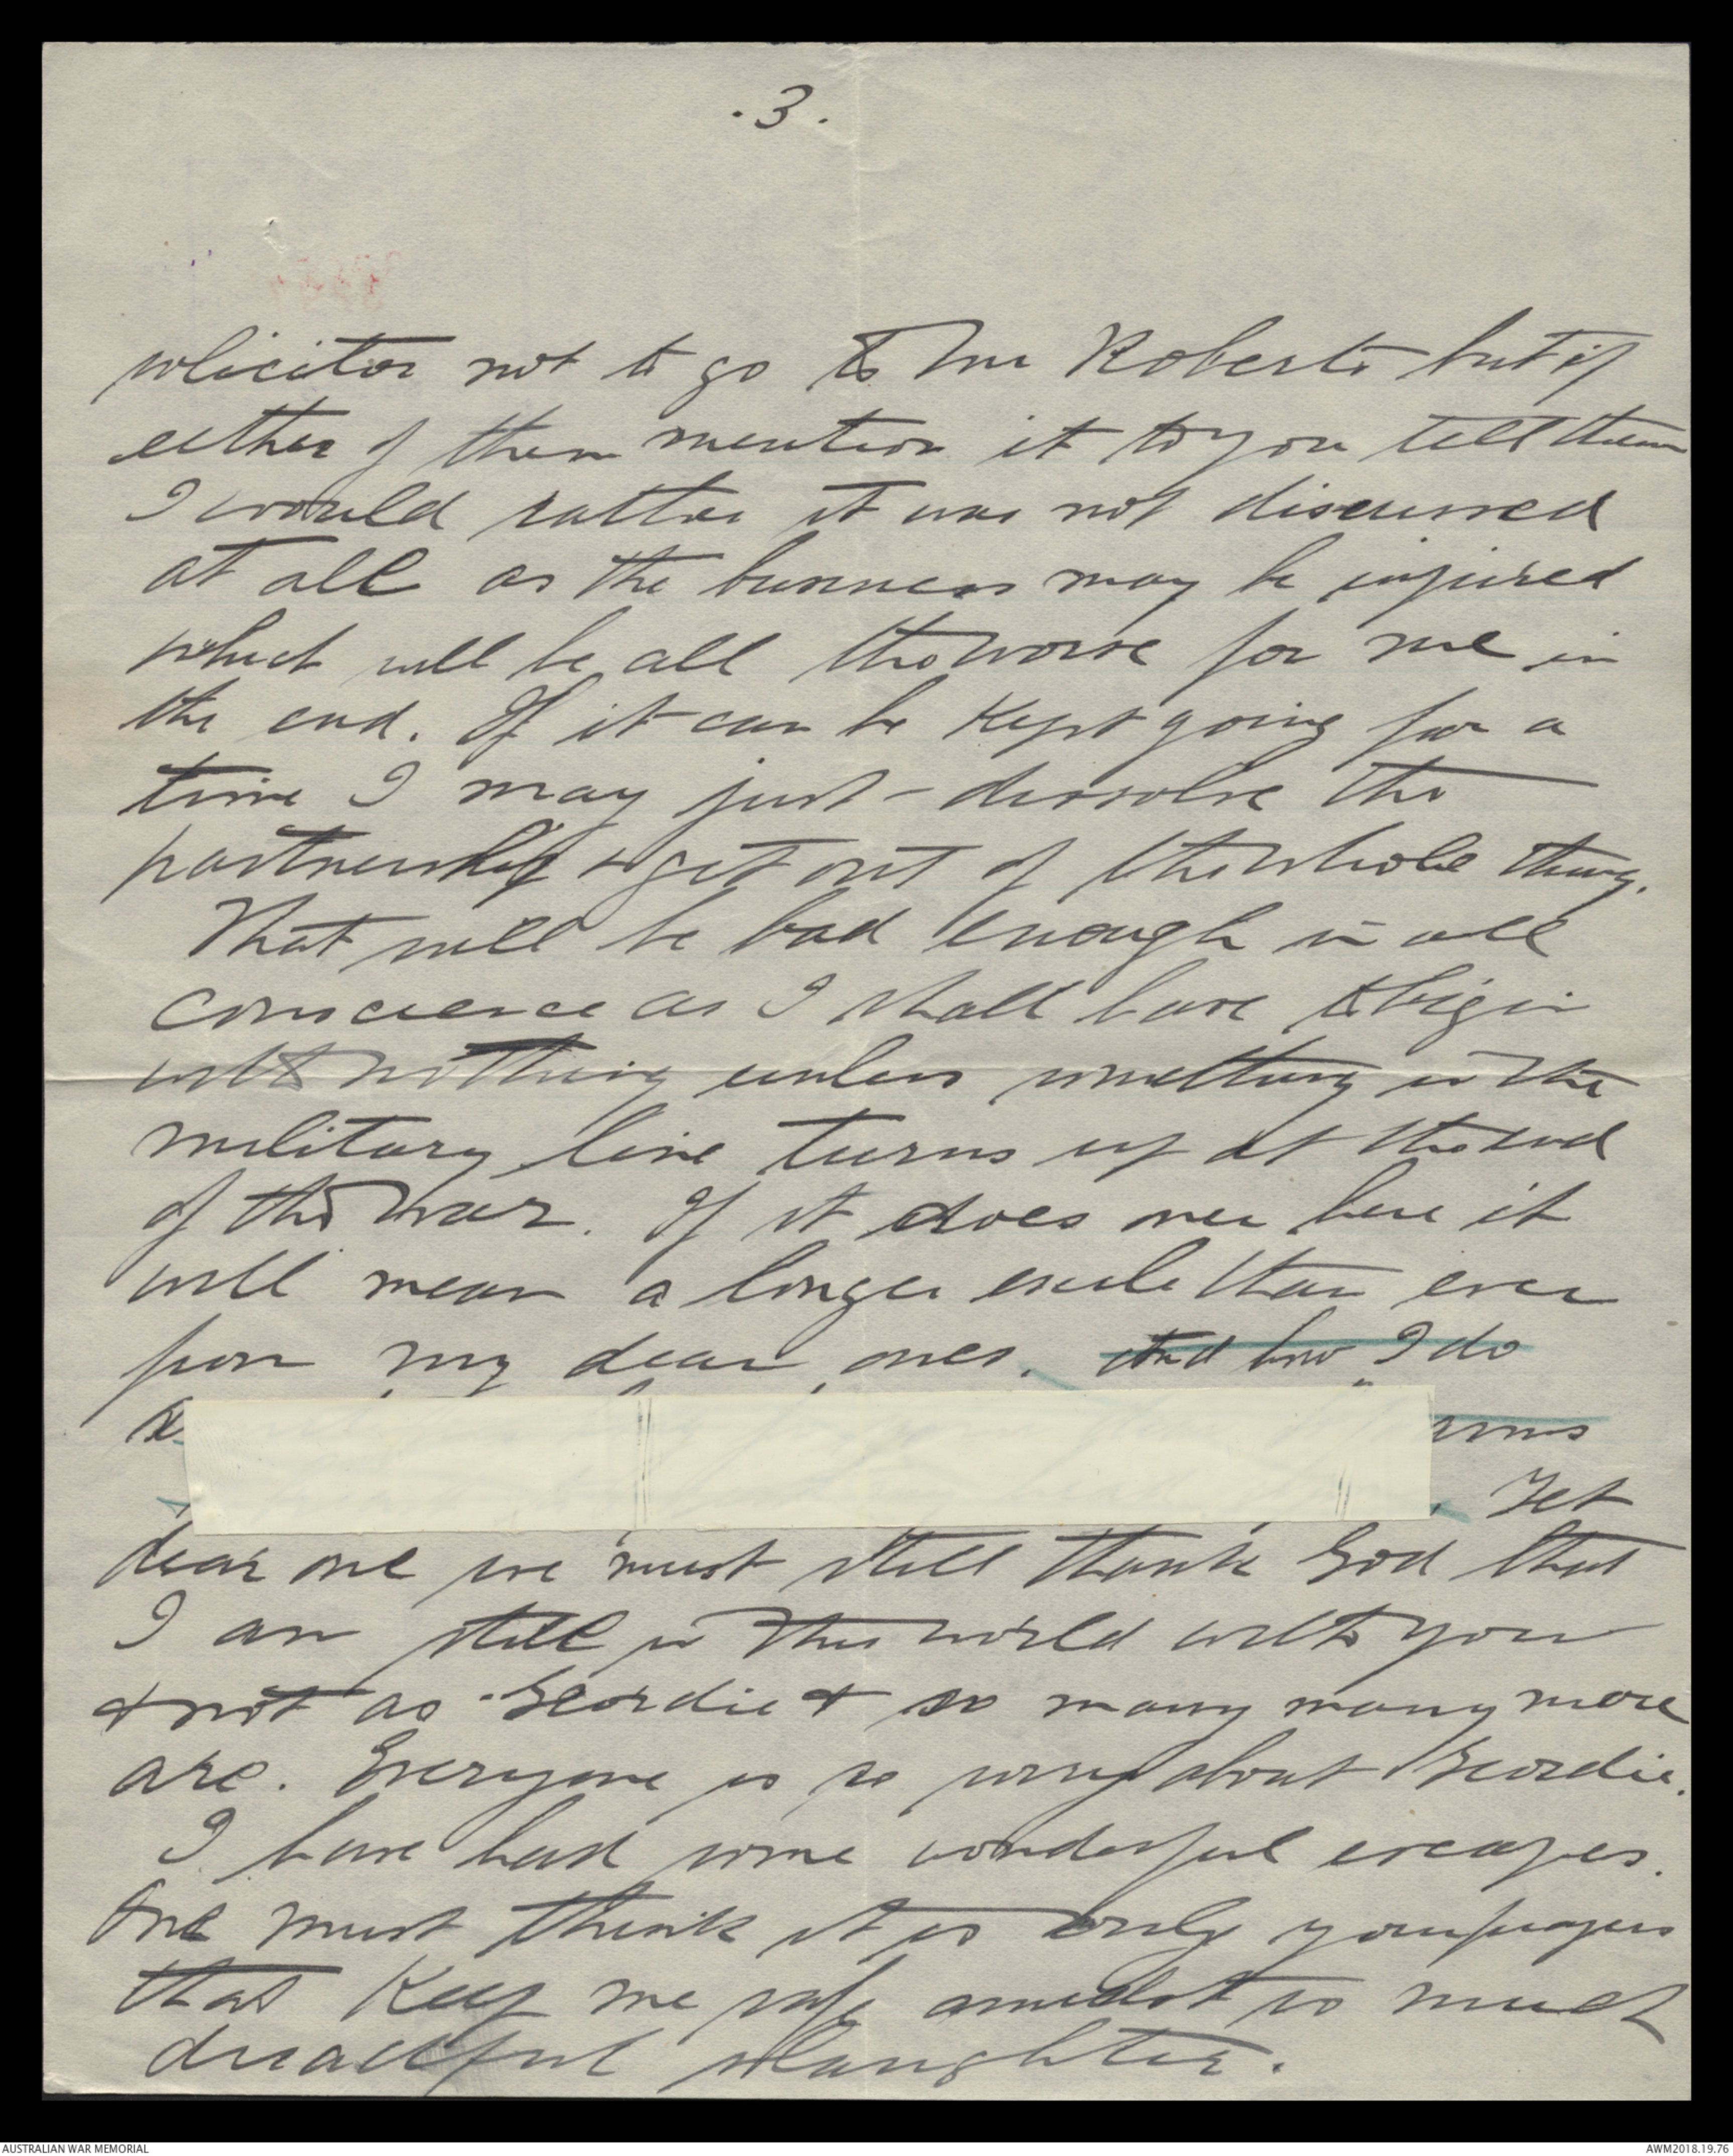 .3.
solicitor not to go to Mr Roberts but if
either of them mention it to you tell them
I would rather it was not discussed
at all as the business may be injured
which will be all the worse for me in
the end. If it can be kept going for a
time I may just - dissolve the
partnership & get out of the whole thing.
That will be bad enough in all
conscience as I shall have to begin
with nothing unless something in the
military line turns up at the end
of the war. If it does over here it
will mean a longer exile than ever
from my dear ones. And how I do
arms
. Yet
dear one we must still thank God that
I am still in this world with you
& not as Geordie & so many many more
are. Everyone is so sorry about Geordie.
I have had some wonderful escapes.
One must think it is only your prayers
that keep me safe amidst so much
dreadful slaughter.
AUSTRALIAN WAR MEMORIAL
AWM2018.19.76